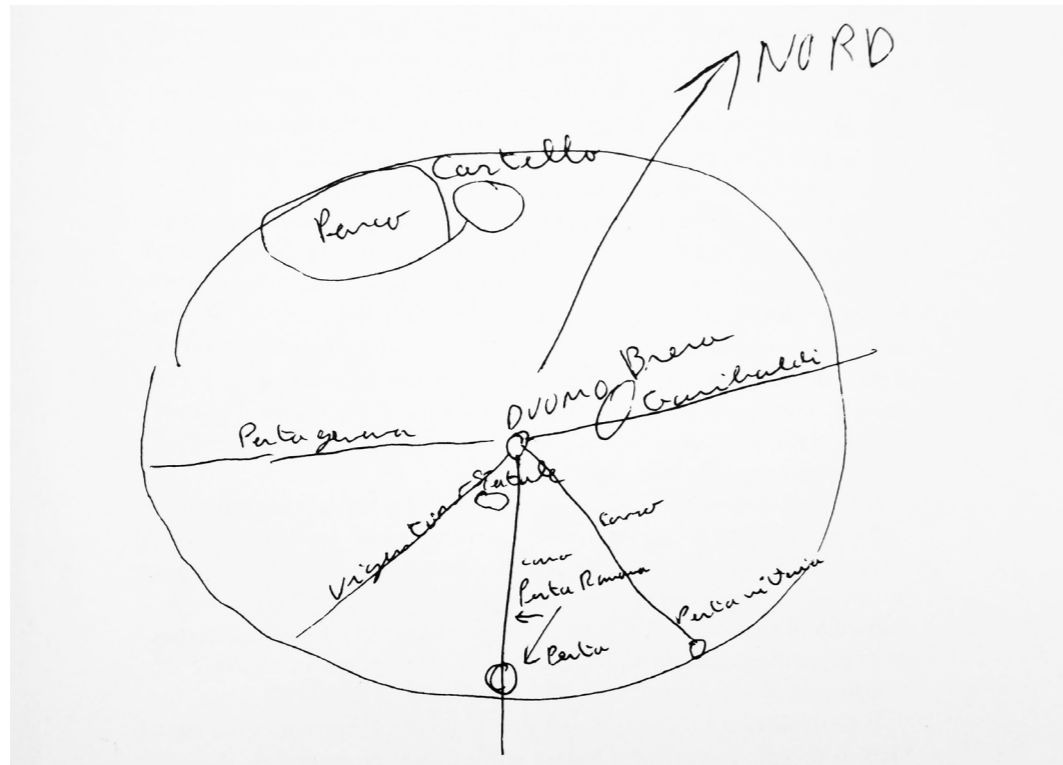 NORD
Castello
Parco
Brera
DUOMO
Garibaldi
Porta genova
Statale
Vigentina
corso
corso
Porta Romana
Porta vittoria
Porta